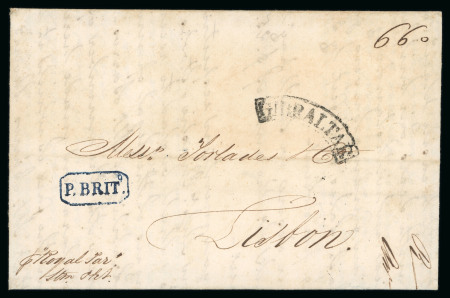 660
GIBRALTAR
Messrs. Torlades & Co
P. BRIT.
Lisbon.
p Royal Tar